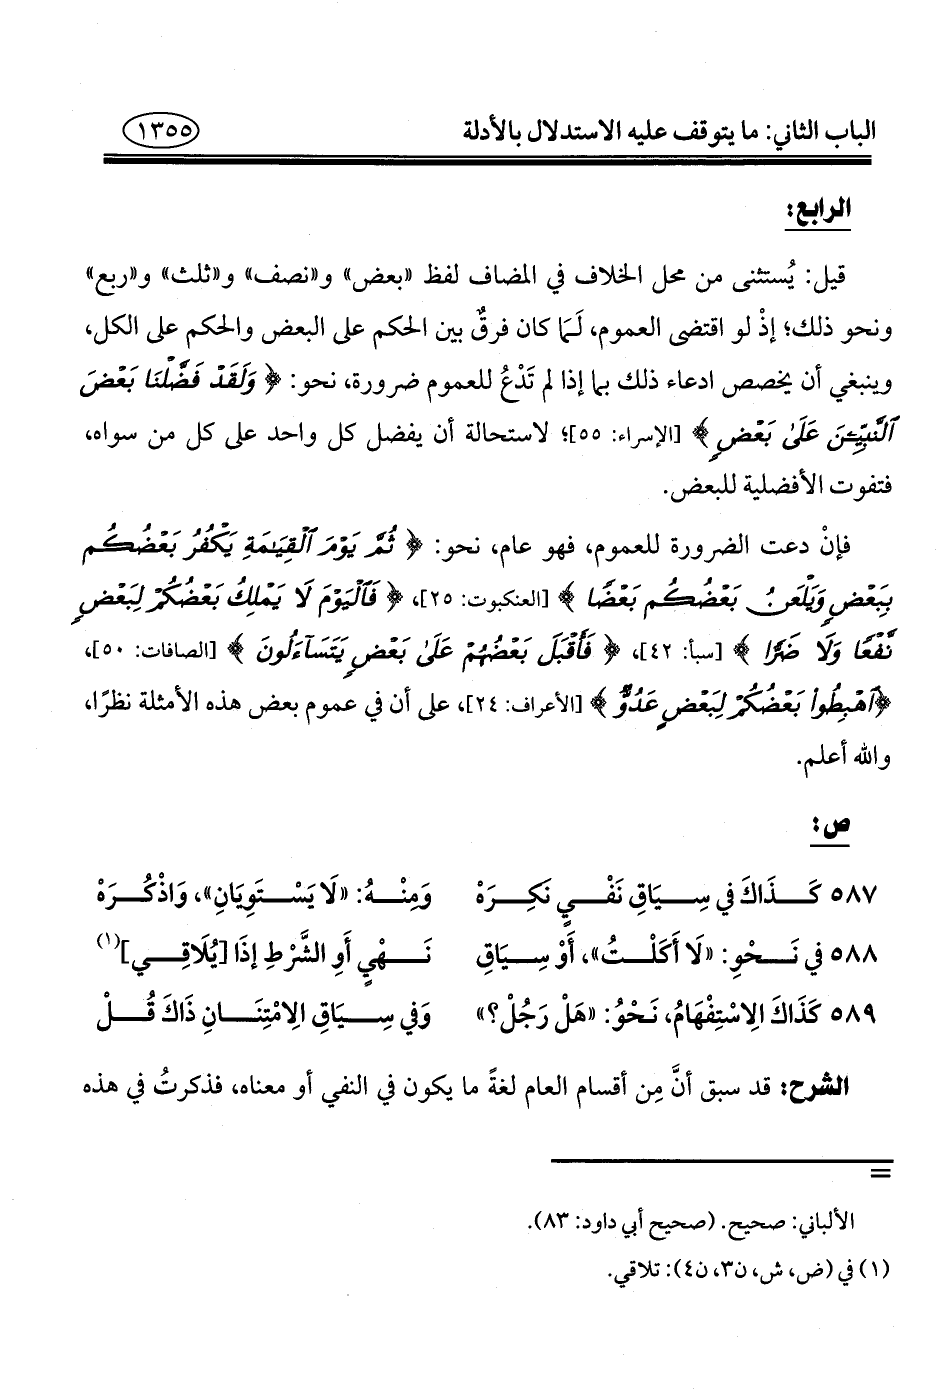 الباب الثاني: ما يتوقف عليه الاستدلال بالأدلة ١٣٥٥
الرابع:
قيل: يُستثنى من محل الخلاف في المضاف لفظ «بعض» و«نصف» و«ثلث» و«ربع»
ونحو ذلك؛ إذْ لو اقتضى العموم، لَمَا كان فرقٌ بين الحكم على البعض والحكم على الكل،
وينبغي أن يخصص ادعاء ذلك بما إذا لم تَدْعُ للعموم ضرورة، نحو: ﴿ وَلَقَدْ فَضَّلْنَا بَعْضَ
ٱلنَّبِيِّـۧنَ عَلَىٰ بَعْضٍ ﴾ [الإسراء: ٥٥]؛ لاستحالة أن يفضل كل واحد على كل من سواه،
فتفوت الأفضلية للبعض.
فإنْ دعت الضرورة للعموم، فهو عام، نحو: ﴿ ثُمَّ يَوْمَ ٱلْقِيَـٰمَةِ يَكْفُرُ بَعْضُكُم
بِبَعْضٍ وَيَلْعَنُ بَعْضُكُم بَعْضًا ﴾ [العنكبوت: ٢٥]، ﴿ فَٱلْيَوْمَ لَا يَمْلِكُ بَعْضُكُمْ لِبَعْضٍ
نَّفْعًا وَلَا ضَرًّا ﴾ [سبأ: ٤٢]، ﴿ فَأَقْبَلَ بَعْضُهُمْ عَلَىٰ بَعْضٍ يَتَسَآءَلُونَ ﴾ [الصافات: ٥٠]،
﴿ٱهْبِطُوا۟ بَعْضُكُمْ لِبَعْضٍ عَدُوٌّ ﴾ [الأعراف: ٢٤]، على أن في عموم بعض هذه الأمثلة نظرًا،
والله أعلم.
ص:
٥٨٧ كَــذَاكَ في سِــيَاقِ نَفْــيٍ نَكِــرَهْ وَمِنْــهُ: «لَا يَسْــتَوِيَانِ»، وَاذْكُــرَهْ
٥٨٨ في نَــحْوِ: «لَا أَكَلْــتُ»، أَوْ سِــيَاقِ نَــهْيٍ أَوِ الشَّرْطِ إذَا [يُلَاقِــي](١)
٥٨٩ كَذَاكَ الِاسْتِفْهَامُ، نَحْوُ: «هَلْ رَجُلْ؟» وَفي سِــيَاقِ الِامْتِنَــانِ ذَاكَ قُــلْ
الشرح: قد سبق أنَّ مِن أقسام العام لغةً ما يكون في النفي أو معناه، فذكرتُ في هذه
=
الألباني: صحيح. (صحيح أبي داود: ٨٣).
(١) في (ض، ش، ن٣، ن٤): تلاقي.